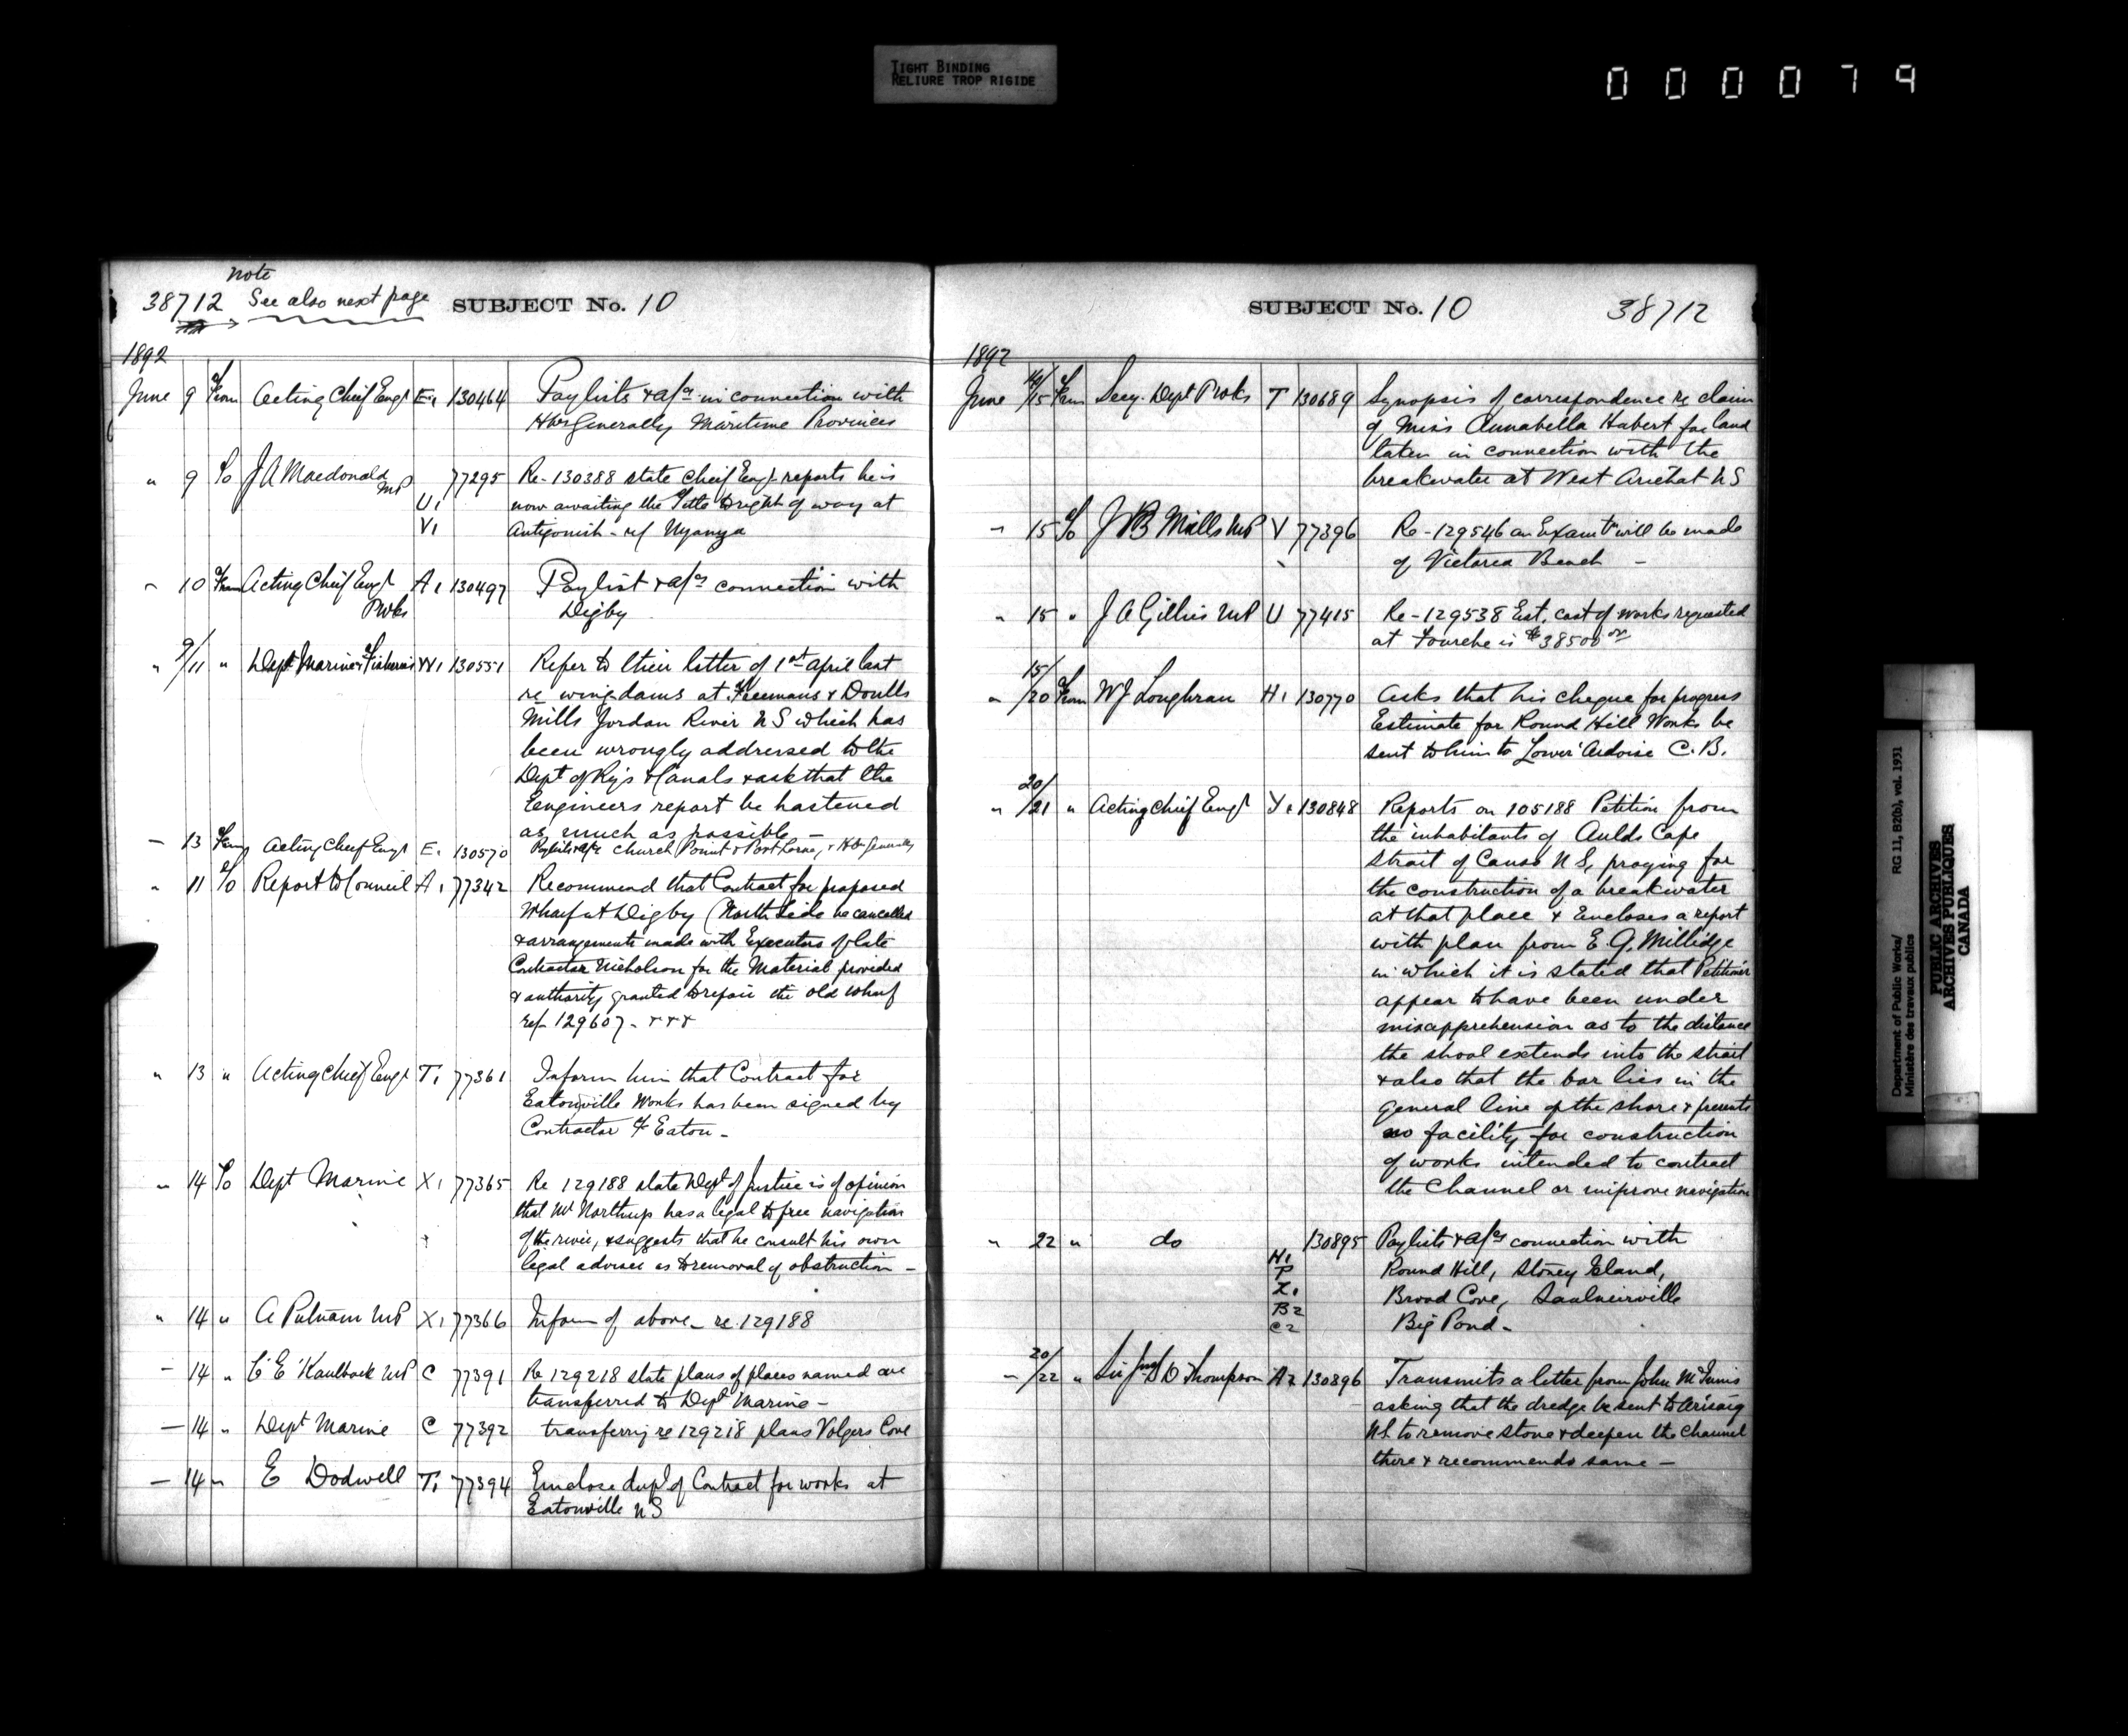 TIGHT BINDING
RELIURE TROP RIGIDE
000079
note
38712 See also next page SUBJECT No. 10
1892
June 9 From Acting Chief Engr E1 130464 Paylists & a/cs in connection with
Hbrs Generally Maritime Provinces
" 9 To J A Macdonald MP 77295 Re- 130388 state Chief Engr reports he is
U1 now awaiting the Title to right of way at
V1 Antigonish - ref Nyanza
" 10 From Acting Chief Engr A1 130497 Paylist & a/cs connection with
Pwks Digby
" 9/11 " Dept Marine & Fisheries W1 130551 Refer to their letter of 1st April last
re wing dams at Freemans & Doulls
Mills Jordan River N S which has
been wrongly addressed to the
Dept of Rys & Canals & ask that the
Engineers report be hastened
as much as possible -
- 13 From Acting Chief Engr E1 130570 Paylists & a/cs Church Point & Port Lorne, & Hbr Generally
" 11 To Report to Council A1 77342 Recommend that Contract for proposed
Wharf at Digby (North Side be cancelled
& arrangements made with Executors of late
Contractor Nicholson for the Material provided
& authority granted to repair the old wharf
ref 129607 - + + +
" 13 " Acting Chief Engr T1 77361 Inform him that Contract for
Eatonville Works has been signed by
Contractor Eaton -
" 14 To Dept Marine X1 77365 Re 129188 state Dept of Justice is of opinion
that Mr Northup has a legal to free navigation
of the river, & suggests that he consult his own
legal adviser as to removal of obstruction -
" 14 " A Putnam MP X1 77366 Inform of above - re 129188
- 14 " C E Kaulback MP C 77391 Re 129218 state plans of places named are
transferred to Dept Marine -
- 14 " Dept Marine C 77392 transferring re 129218 plans Volgers Cove
- 14 " E Dodwell T1 77394 Enclose dupl of Contract for works at
Eatonville N S
SUBJECT No. 10 38712
1892
June 15 From Secy. Dept Pwks T 130689 Synopsis of correspondence re claim
of Miss Annabella Hubert for land
taken in connection with the
breakwater at West Arichat N S
" 15 To J B Mills MP V 77396 Re - 129546 an Examtn will be made
of Victoria Beach -
" 15 " J A Gillies MP U 77415 Re - 129538 Est. cost of works requested
at Fourche is $38500 00
15/
" /20 From W J Loughran H1 130770 Asks that his cheque for progress
Estimate for Round Hill Works be
sent to him to Lower Ardoise C. B.
20/
" /21 " Acting Chief Engr Y1 130848 Reports on 105188 Petition from
the inhabitants of Aulds Cape
Strait of Canso N S, praying for
the construction of a breakwater
at that place & Encloses a report
with plan from E. G. Millidge
in which it is stated that Petitioners
appear to have been under
misapprehension as to the distance
the shoal extends into the strait
& also that the bar lies in the
general line of the shore & presents
no facility for construction
of works intended to contract
the Channel or improve navigation
" 22 " do 130895 Paylists & a/cs connection with
H1 Round Hill, Stoney Island,
P
Z1 Broad Cove, Saulnierville
B2
C2 Big Pond -
20/
- /22 " Sir Jno S D Thompson A2 130896 Transmits a letter from John McInnis
asking that the dredge be sent to Arisaig
N S. to remove stone & deepen the Channel
there & recommends same -
Department of Public Works/ RG 11, B2(b), vol. 1931
Ministère des travaux publics
PUBLIC ARCHIVES
ARCHIVES PUBLIQUES
CANADA